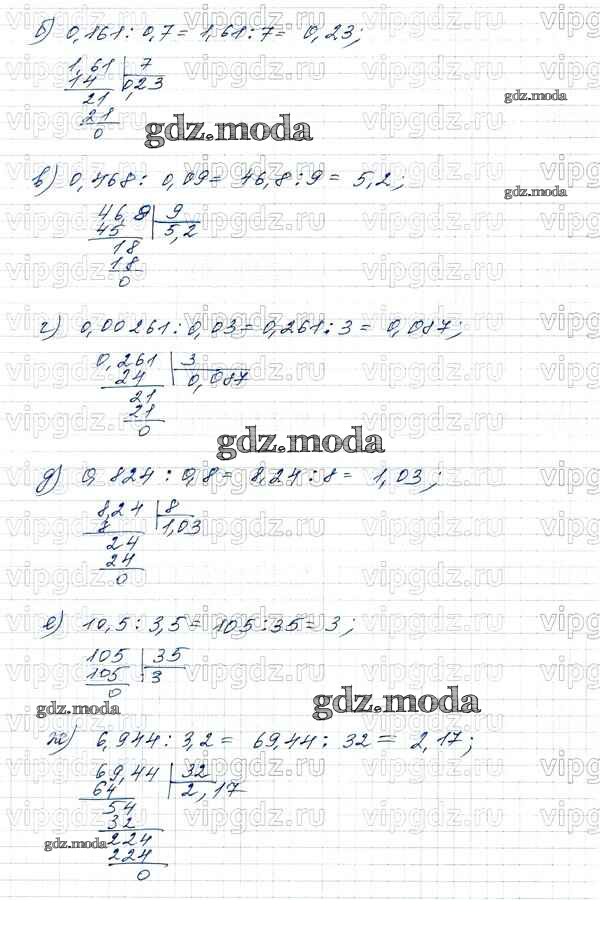 б) 0,161 : 0,7 = 1,61 : 7 = 0,23;
1,61 7
14 0,23
21
21
0
gdz.moda
gdz.moda
в) 0,468 : 0,09 = 46,8 : 9 = 5,2;
gdz.moda
46,8 9
45 5,2
18
18
0
г) 0,00261 : 0,03 = 0,261 : 3 = 0,087;
0,261 3
24 0,087
21
21
0
gdz.moda
д) 0,824 : 0,8 = 8,24 : 8 = 1,03;
8,24 8
8 1,03
24
24
0
е) 10,5 : 3,5 = 105 : 35 = 3;
105 35
105 3
0
gdz.moda
gdz.moda
ж) 6,944 : 3,2 = 69,44 : 32 = 2,17;
69,44 32
64 2,17
54
32
gdz.moda
224
224
0
vipgdz.ru